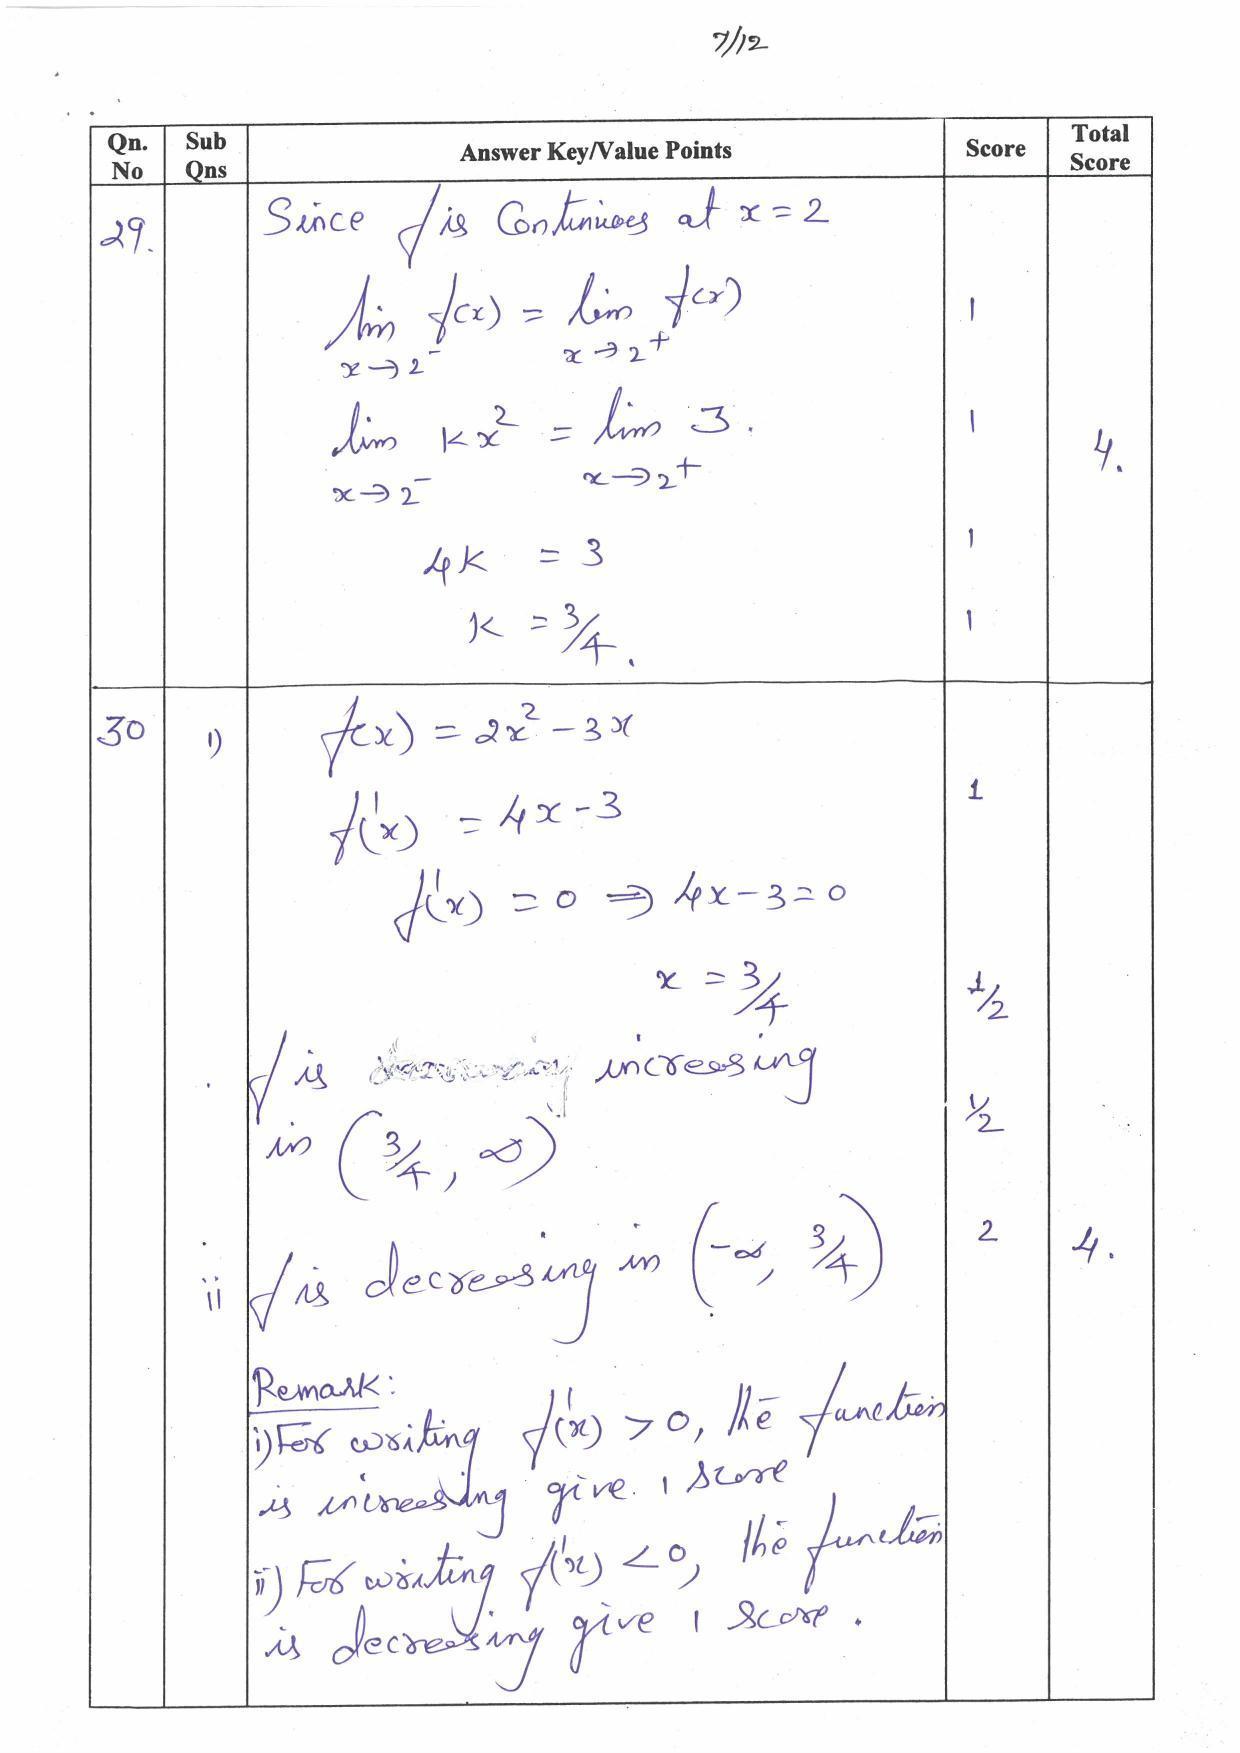 7/12
Qn. No Sub Qns Answer Key/Value Points Score Total Score
29. Since f is Continuous at x = 2
lim f(x) = lim f(x) 1
x→2⁻ x→2⁺
lim kx² = lim 3. 1
x→2⁻ x→2⁺
4.
4k = 3 1
k = 3/4. 1
30 i) f(x) = 2x² - 3x
f'(x) = 4x - 3 1
f'(x) = 0 ⇒ 4x - 3 = 0
x = 3/4 1/2
f is increasing
in (3/4, ∞) 1/2
ii f is decreasing in (-∞, 3/4) 2 4.
Remark:
i) For writing f'(x) > 0, the function
is increasing give. 1 score
ii) For writing f'(x) < 0, the function
is decreasing give 1 score.